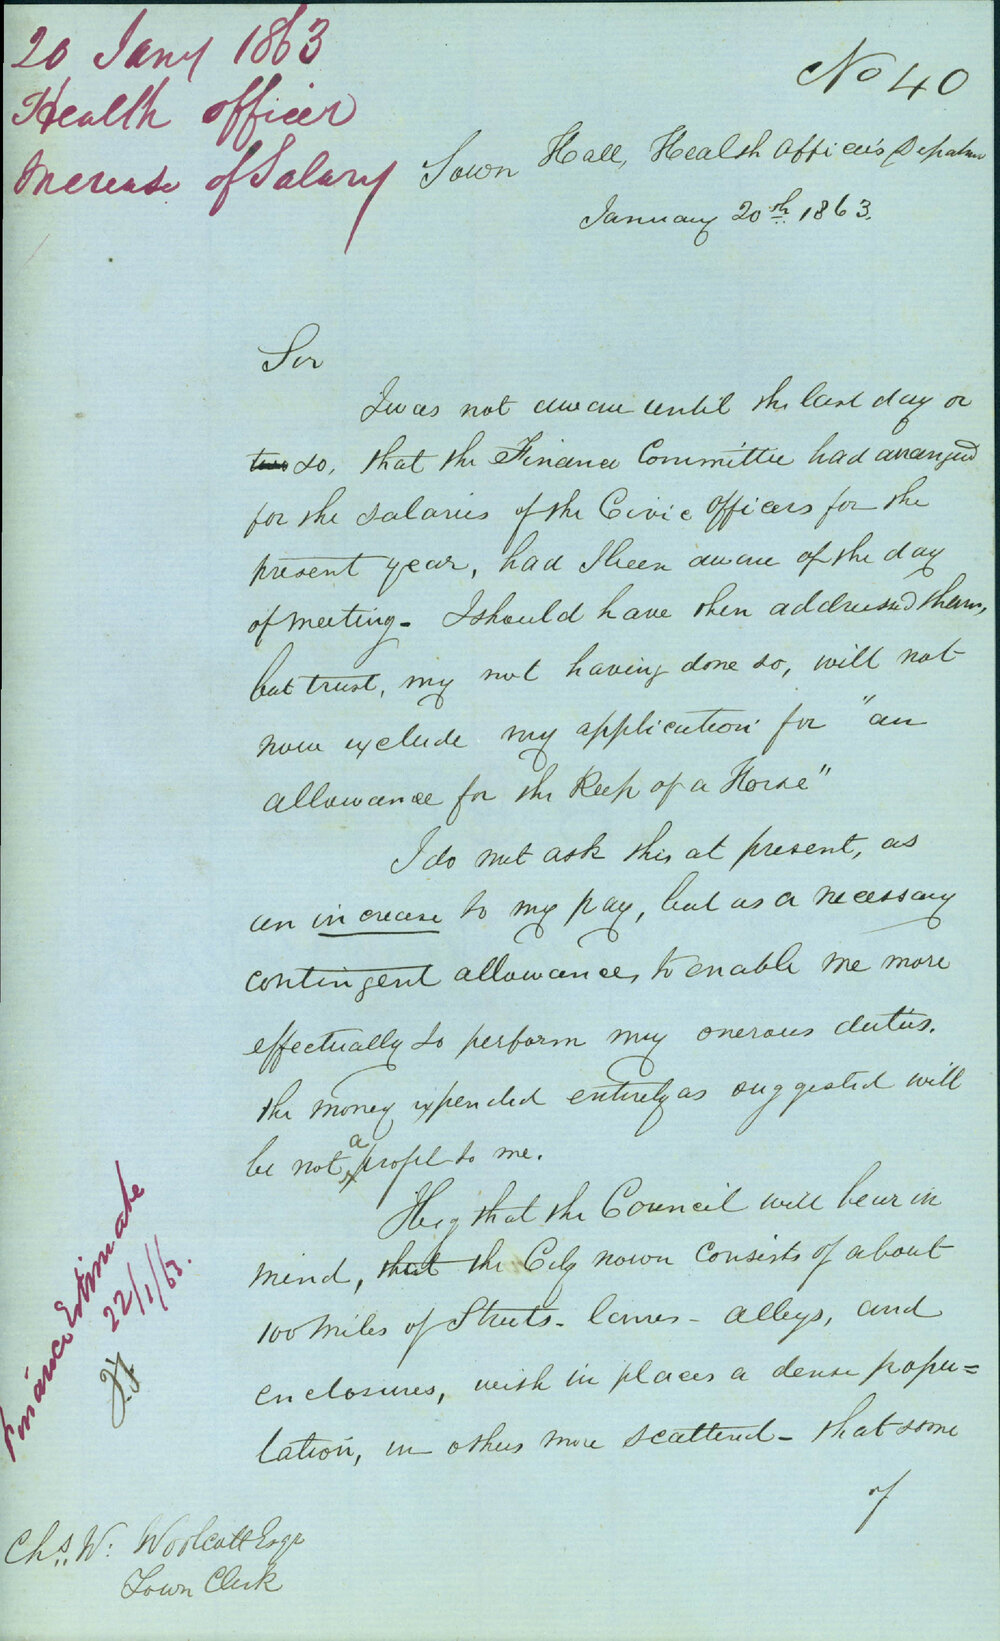 20 Jany 1863
Health officer
Increase of Salary
No 40
Town Hall, Health Officer's Departm
January 20th 1863.
Sir
I was not aware until the last day or
two so, that the Finance Committee had arranged
for the salaries of the Civic Officers for the
present year, had I been aware of the day
of meeting - I should have then addressed them,
but trust, my not having done so, will not
now exclude my application for "an
allowance for the Keep of a Horse"
I do not ask this at present, as
an increase to my pay, but as a necessary
contingent allowance, to enable me more
effectually to perform my onerous duties.
the money expended entirely as suggested will
be not a profit to me.
I beg that the Council will bear in
mind, that the City now consists of about
100 miles of Streets - lanes - alleys, and
enclosures, with in places a dense popu=
lation, in others more scattered - that some
of
Finance Estimate
22/1/63.
Chs. W: Woolcott Esqr
Town Clerk